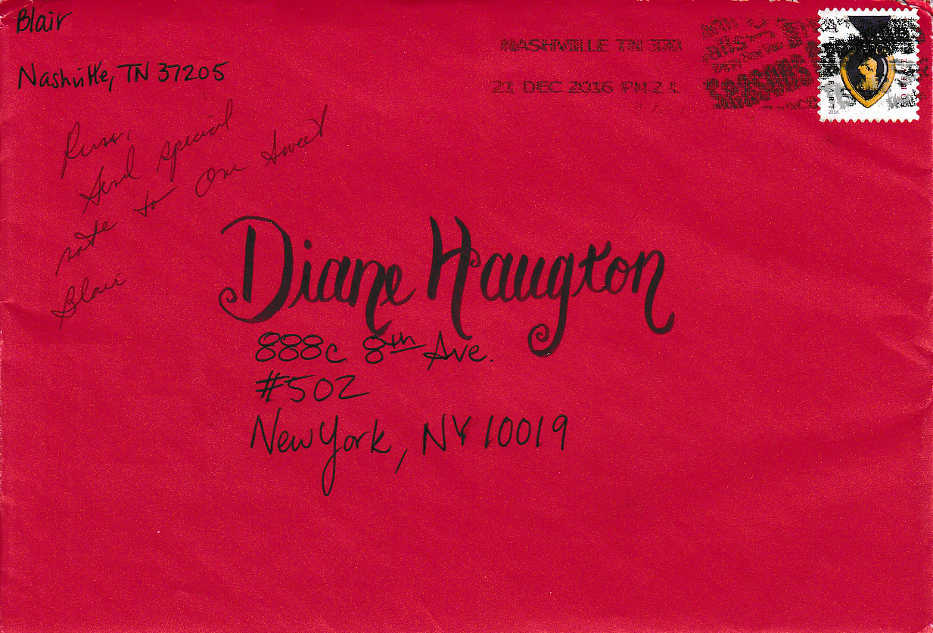 Blair
Nashville, TN 37205
NASHVILLE TN 370
21 DEC 2016 PM 2 L
Russ,
Send special
note to One Sweet
Blair
Diane Haugton
888c 8th Ave.
#502
New York, NY 10019